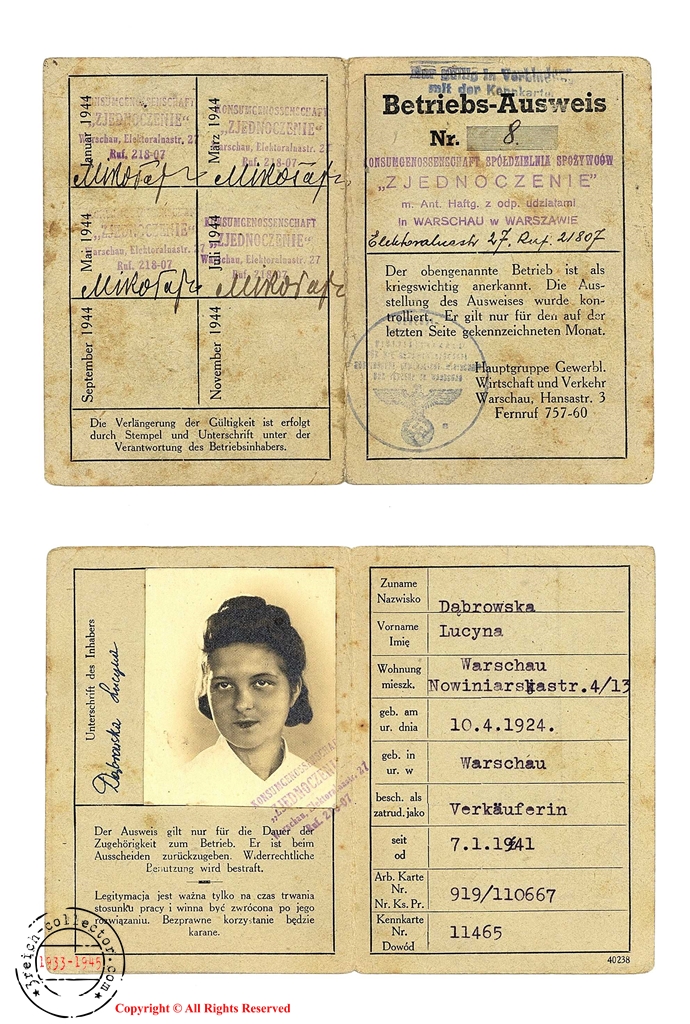 Januar 1944
KONSUMGENOSSENSCHAFT
„ZJEDNOCZENIE"
Warschau, Elektoralnastr. 27
Ruf. 218-07
Mikołajz
März 1944
KONSUMGENOSSENSCHAFT
„ZJEDNOCZENIE"
Warschau, Elektoralnastr. 27
Ruf. 218-07
Mikołajz
Mai 1944
„ZJEDNOCZENIE"
Warschau, Elektoralnastr. 27
Ruf. 218-07
Mikołajz
Juli 1944
KONSUMGENOSSENSCHAFT
„ZJEDNOCZENIE"
Warschau, Elektoralnastr. 27
Ruf. 218-07
Mikołajz
September 1944
November 1944
Die Verlängerung der Gültigkeit ist erfolgt
durch Stempel und Unterschrift unter der
Verantwortung des Betriebsinhabers.
Nur gültig in Verbindung
mit der Kennkarte.
Betriebs-Ausweis
Nr. 8.
KONSUMGENOSSENSCHAFT SPÓŁDZIELNIA SPOŻYWCÓW
„ZJEDNOCZENIE"
m. Ant. Haftg. z odp. udziałami
in WARSCHAU w WARSZAWIE
Elektoralnastr 27. Ruf. 21807
Der obengenannte Betrieb ist als
kriegswichtig anerkannt. Die Aus-
stellung des Ausweises wurde kon-
trolliert. Er gilt nur für den auf der
letzten Seite gekennzeichneten Monat.
Hauptgruppe Gewerbl.
Wirtschaft und Verkehr
Warschau, Hansastr. 3
Fernruf 757-60
Unterschrift des Inhabers
Dąbrowska Lucyna
KONSUMGENOSSENSCHAFT
„ZJEDNOCZENIE"
Warschau, Elektoralnastr. 27
Ruf. 218-07
Der Ausweis gilt nur für die Dauer der
Zugehörigkeit zum Betrieb. Er ist beim
Ausscheiden zurückzugeben. Widerrechtliche
Benutzung wird bestraft.
Legitymacja jest ważna tylko na czas trwania
stosunku pracy i winna być zwrócona po jego
rozwiązaniu. Bezprawne korzystanie będzie
karane.
Zuname
Nazwisko
Dąbrowska
Vorname
Imię
Lucyna
Wohnung
mieszk.
Warschau
Nowiniarskastr.4/13
geb. am
ur. dnia
10.4.1924.
geb. in
ur. w
Warschau
besch. als
zatrud. jako
Verkäuferin
seit
od
7.1.1941
Arb. Karte
Nr.
Nr. Ks. Pr.
919/110667
Kennkarte
Nr.
Dowód
11465
40238
3reich-collector.com
1933-1945
Copyright © All Rights Reserved